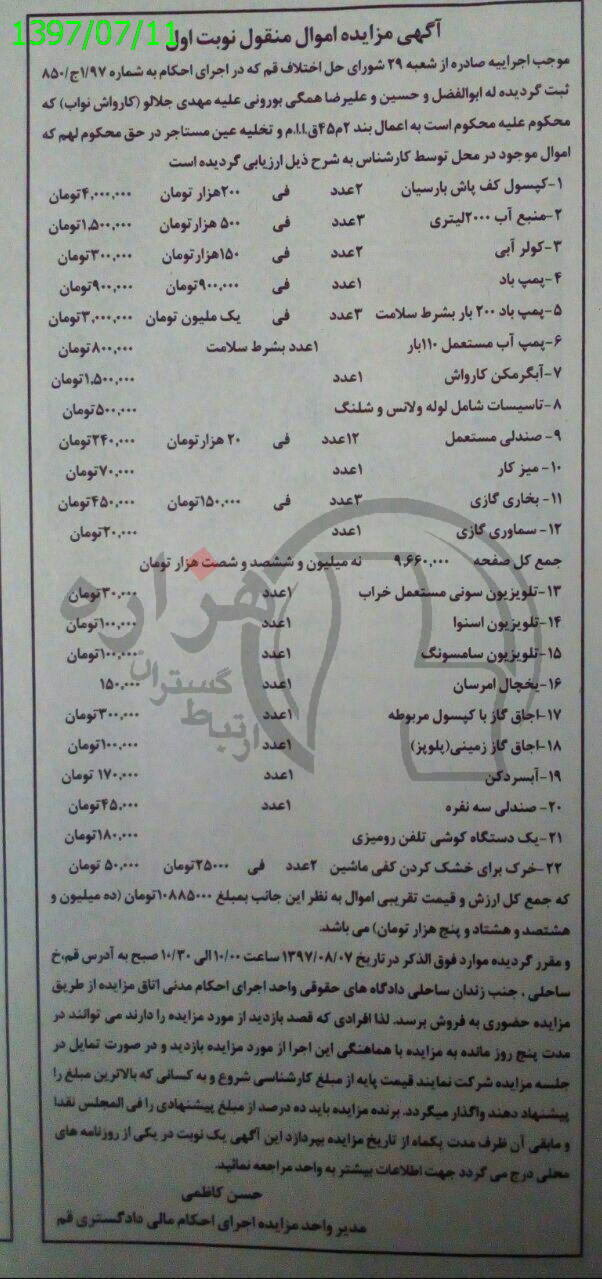 1397/07/11
آگهی مزایده اموال منقول نوبت اول
موجب اجراییه صادره از شعبه ۲۹ شورای حل اختلاف قم که در اجرای احکام به شماره ۱/۹۷ج/۸۵۰
ثبت گردیده له ابوالفضل و حسین و علیرضا همگی بورونی علیه مهدی جلالو (کارواش نواب) که
محکوم علیه محکوم است به اعمال بند ۲م۴۵ق.ا.ا.م و تخلیه عین مستاجر در حق محکوم لهم که
اموال موجود در محل توسط کارشناس به شرح ذیل ارزیابی گردیده است
۱-کپسول کف پاش بارسیان ۲عدد فی ۲۰۰هزار تومان ۴,۰۰۰,۰۰۰تومان
۲-منبع آب ۲۰۰۰لیتری ۳عدد فی ۵۰۰ هزارتومان ۱,۵۰۰,۰۰۰تومان
۳-کولر آبی ۲عدد فی ۱۵۰هزارتومان ۳۰۰,۰۰۰تومان
۴-پمپ باد ۱عدد فی ۹۰۰,۰۰۰تومان ۹۰۰,۰۰۰تومان
۵-پمپ باد ۲۰۰ بار بشرط سلامت ۳عدد فی یک ملیون تومان ۳,۰۰۰,۰۰۰تومان
۶-پمپ آب مستعمل ۱۱۰بار ۱عدد بشرط سلامت ۸۰۰,۰۰۰تومان
۷-آبگرمکن کارواش ۱عدد ۱,۵۰۰,۰۰۰تومان
۸-تاسیسات شامل لوله ولانس و شلنگ ۵۰۰,۰۰۰تومان
۹- صندلی مستعمل ۱۲عدد فی ۲۰ هزارتومان ۲۴۰,۰۰۰تومان
۱۰- میز کار ۱عدد ۷۰,۰۰۰تومان
۱۱- بخاری گازی ۳عدد فی ۱۵۰,۰۰۰تومان ۴۵۰,۰۰۰تومان
۱۲- سماوری گازی ۱عدد ۲۰,۰۰۰تومان
جمع کل صفحه ۹,۶۶۰,۰۰۰ نه میلیون و ششصد و شصت هزار تومان
۱۳-تلویزیون سونی مستعمل خراب ۱عدد ۳۰,۰۰۰تومان
۱۴-تلویزیون اسنوا ۱عدد ۱۰۰,۰۰۰تومان
۱۵-تلویزیون سامسونگ ۱عدد ۱۰۰,۰۰۰تومان
۱۶-یخچال امرسان ۱عدد ۱۵۰,۰۰۰
۱۷-اجاق گاز با کپسول مربوطه ۱عدد ۳۰۰,۰۰۰تومان
۱۸-اجاق گاز زمینی(پلوپز) ۱عدد ۱۰۰,۰۰۰تومان
۱۹-آبسردکن ۱عدد ۱۷۰,۰۰۰ تومان
۲۰- صندلی سه نفره ۱عدد ۴۵,۰۰۰تومان
۲۱-یک دستگاه گوشی تلفن رومیزی ۱۸۰,۰۰۰تومان
۲۲-خرک برای خشک کردن کفی ماشین ۲عدد فی ۲۵۰۰۰تومان ۵۰,۰۰۰ تومان
که جمع کل ارزش و قیمت تقریبی اموال به نظر این جانب بمبلغ ۱۰۸۸۵۰۰۰تومان (ده میلیون و
هشتصد و هشتاد و پنج هزار تومان) می باشد.
و مقرر گردیده موارد فوق الذکر درتاریخ ۱۳۹۷/۰۸/۰۷ ساعت ۱۰/۰۰ الی ۱۰/۳۰ صبح به آدرس قم،خ
ساحلی ، جنب زندان ساحلی دادگاه های حقوقی واحد اجرای احکام مدنی اتاق مزایده از طریق
مزایده حضوری به فروش برسد. لذا افرادی که قصد بازدید از مورد مزایده را دارند می توانند در
مدت پنج روز مانده به مزایده با هماهنگی این اجرا از مورد مزایده بازدید و در صورت تمایل در
جلسه مزایده شرکت نمایند قیمت پایه از مبلغ کارشناسی شروع و به کسانی که بالاترین مبلغ را
پیشنهاد دهند واگذار میگردد. برنده مزایده باید ده درصد از مبلغ پیشنهادی را فی المجلس نقدا
و مابقی آن ظرف مدت یکماه از تاریخ مزایده بپردازد این آگهی یک نوبت در یکی از روزنامه های
محلی درج می گردد جهت اطلاعات بیشتر به واحد مراجعه نمائید.
حسن کاظمی
مدیر واحد مزایده اجرای احکام مالی دادگستری قم
هزاره
گستران
ارتباط